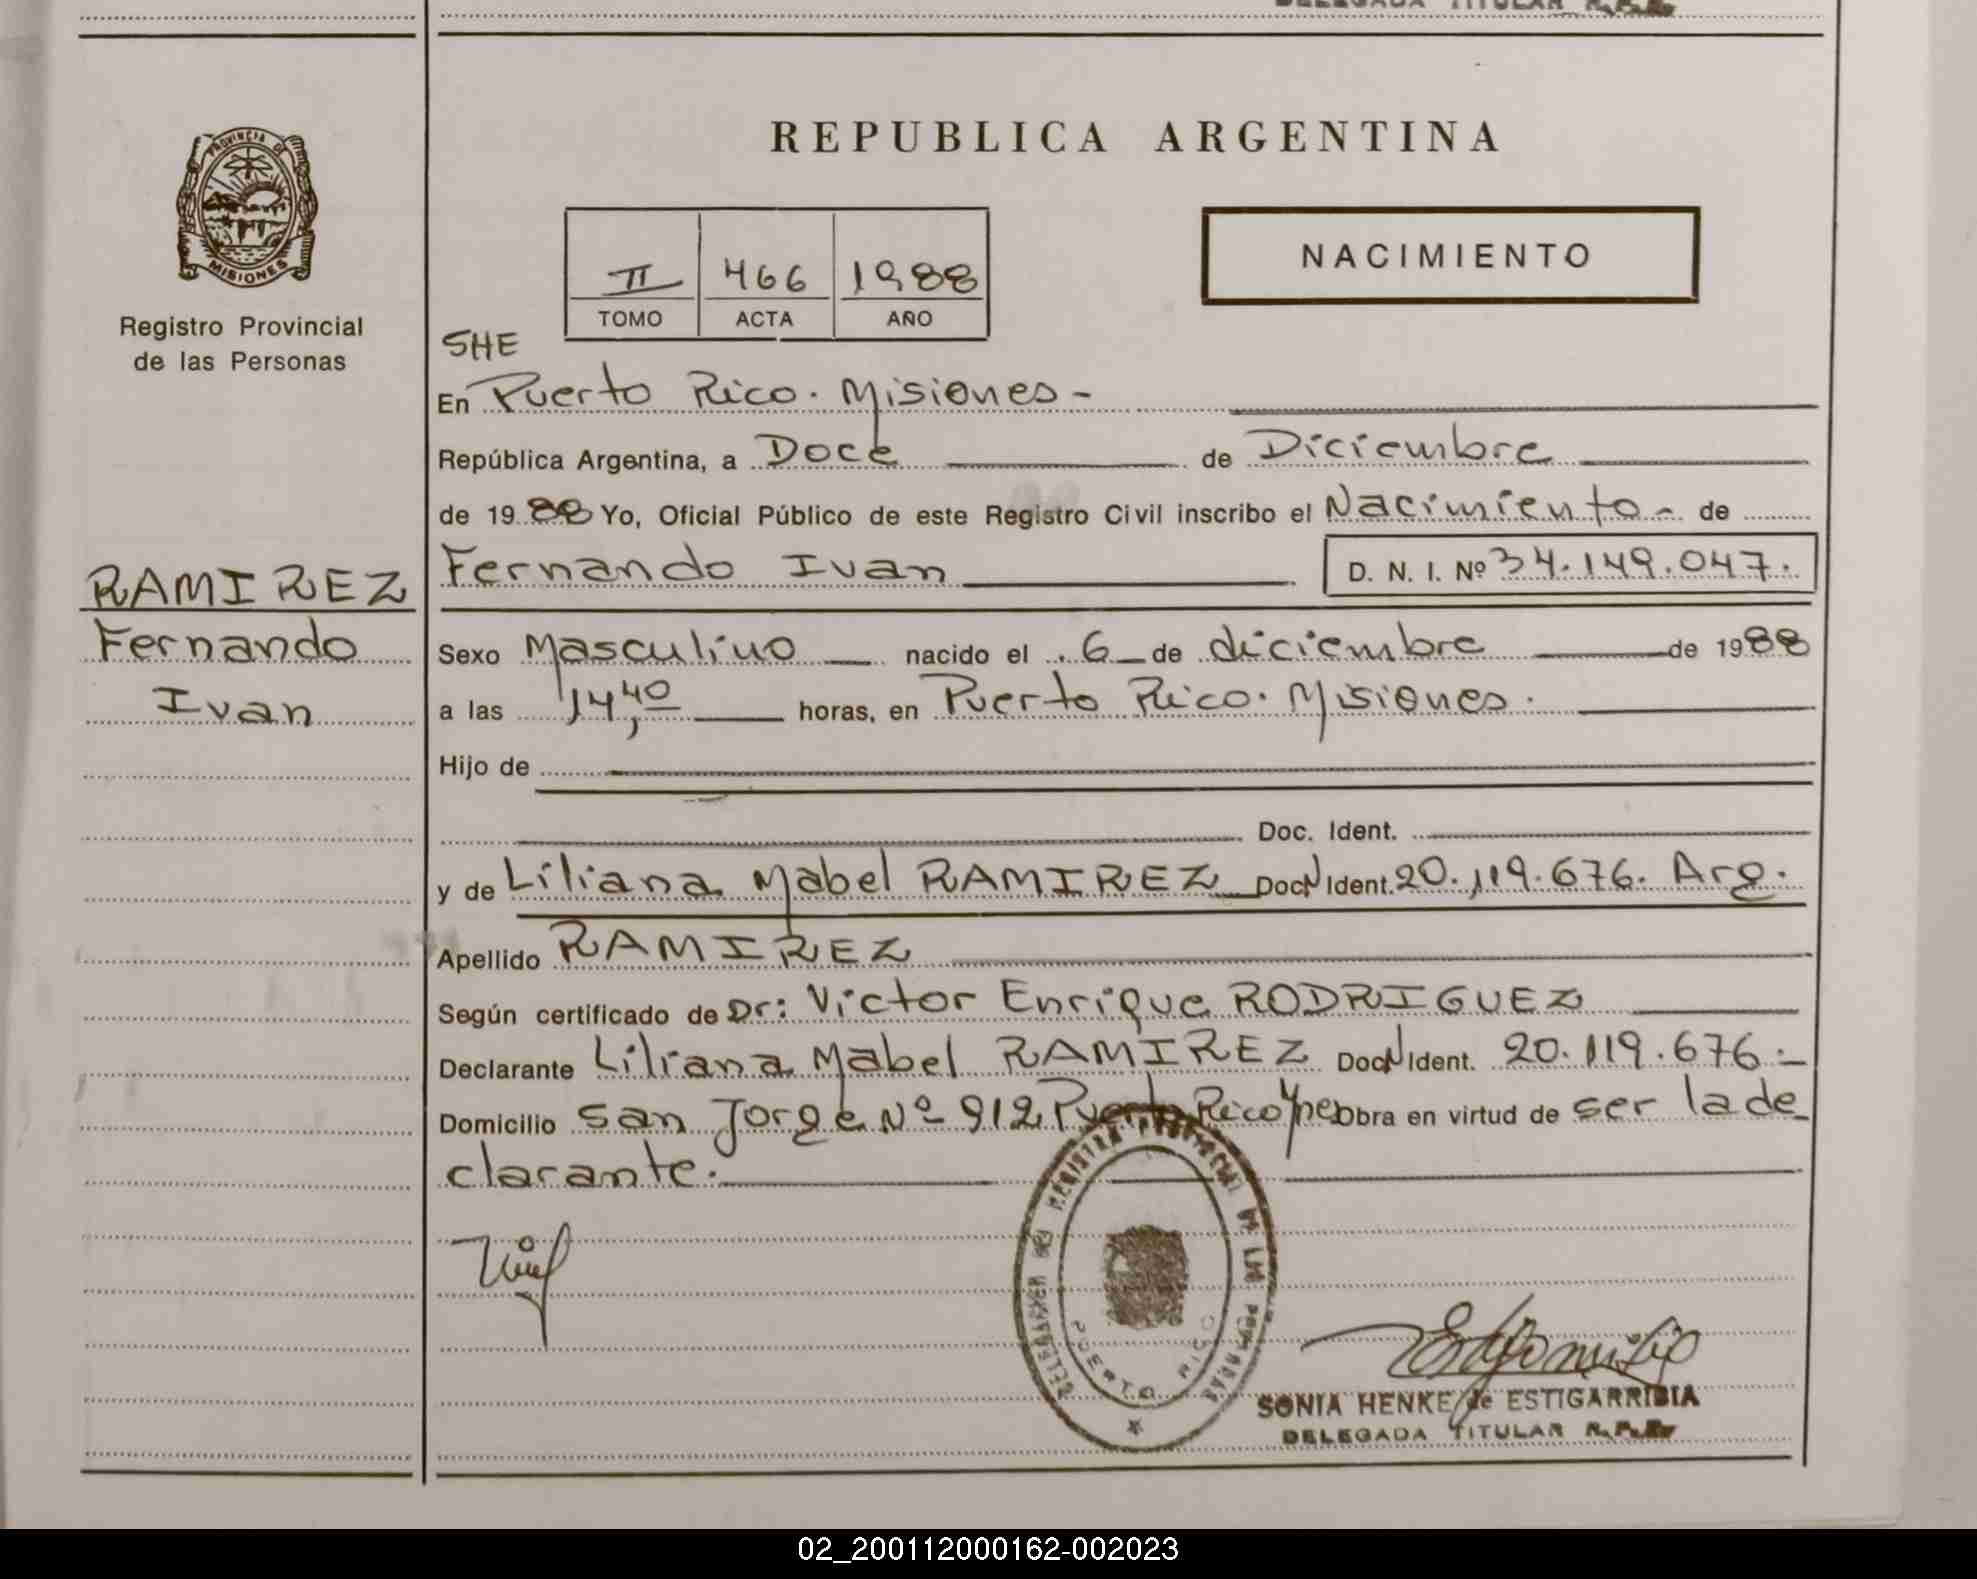 DELEGADA TITULAR R.P.P.
PROVINCIA DE
MISIONES
Registro Provincial
de las Personas
RAMIREZ
Fernando
Ivan
REPUBLICA ARGENTINA
II 466 1988
TOMO ACTA AÑO
NACIMIENTO
SHE
En Puerto Rico. Misiones -
República Argentina, a Doce de Diciembre
de 1988 Yo, Oficial Público de este Registro Civil inscribo el Nacimiento - de
Fernando Ivan D. N. I. Nº 34.149.047.
Sexo Masculino nacido el 6 de diciembre de 1988
a las 14,40 horas, en Puerto Rico. Misiones.
Hijo de
Doc. Ident.
y de Liliana Mabel RAMIREZ Doc N Ident. 20.119.676. Arg.
Apellido RAMIREZ
Según certificado de Dr: Victor Enrique RODRIGUEZ
Declarante Liliana Mabel RAMIREZ Doc N Ident. 20.119.676.-
Domicilio San Jorge Nº 912 Puerto Rico Mnes Obra en virtud de ser la de
clarante.
REGISTRO PROVINCIAL DE LAS PERSONAS
PUERTO RICO
SONIA HENKE de ESTIGARRIBIA
DELEGADA TITULAR R.P.P.
02_200112000162-002023